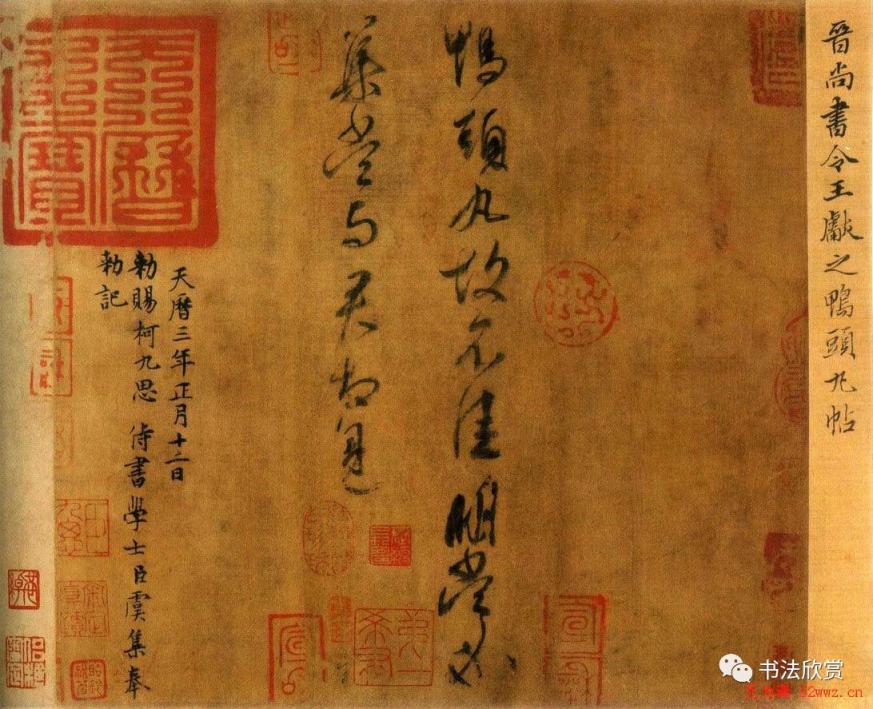 晉尚書令王獻之鴨頭丸帖
鴨頭丸故不佳明當必
集當與君相見
天曆之寶
天曆三年正月十二日
勅賜柯九思 侍書學士臣虞集奉
勅記
书法欣赏
52wwz.cn